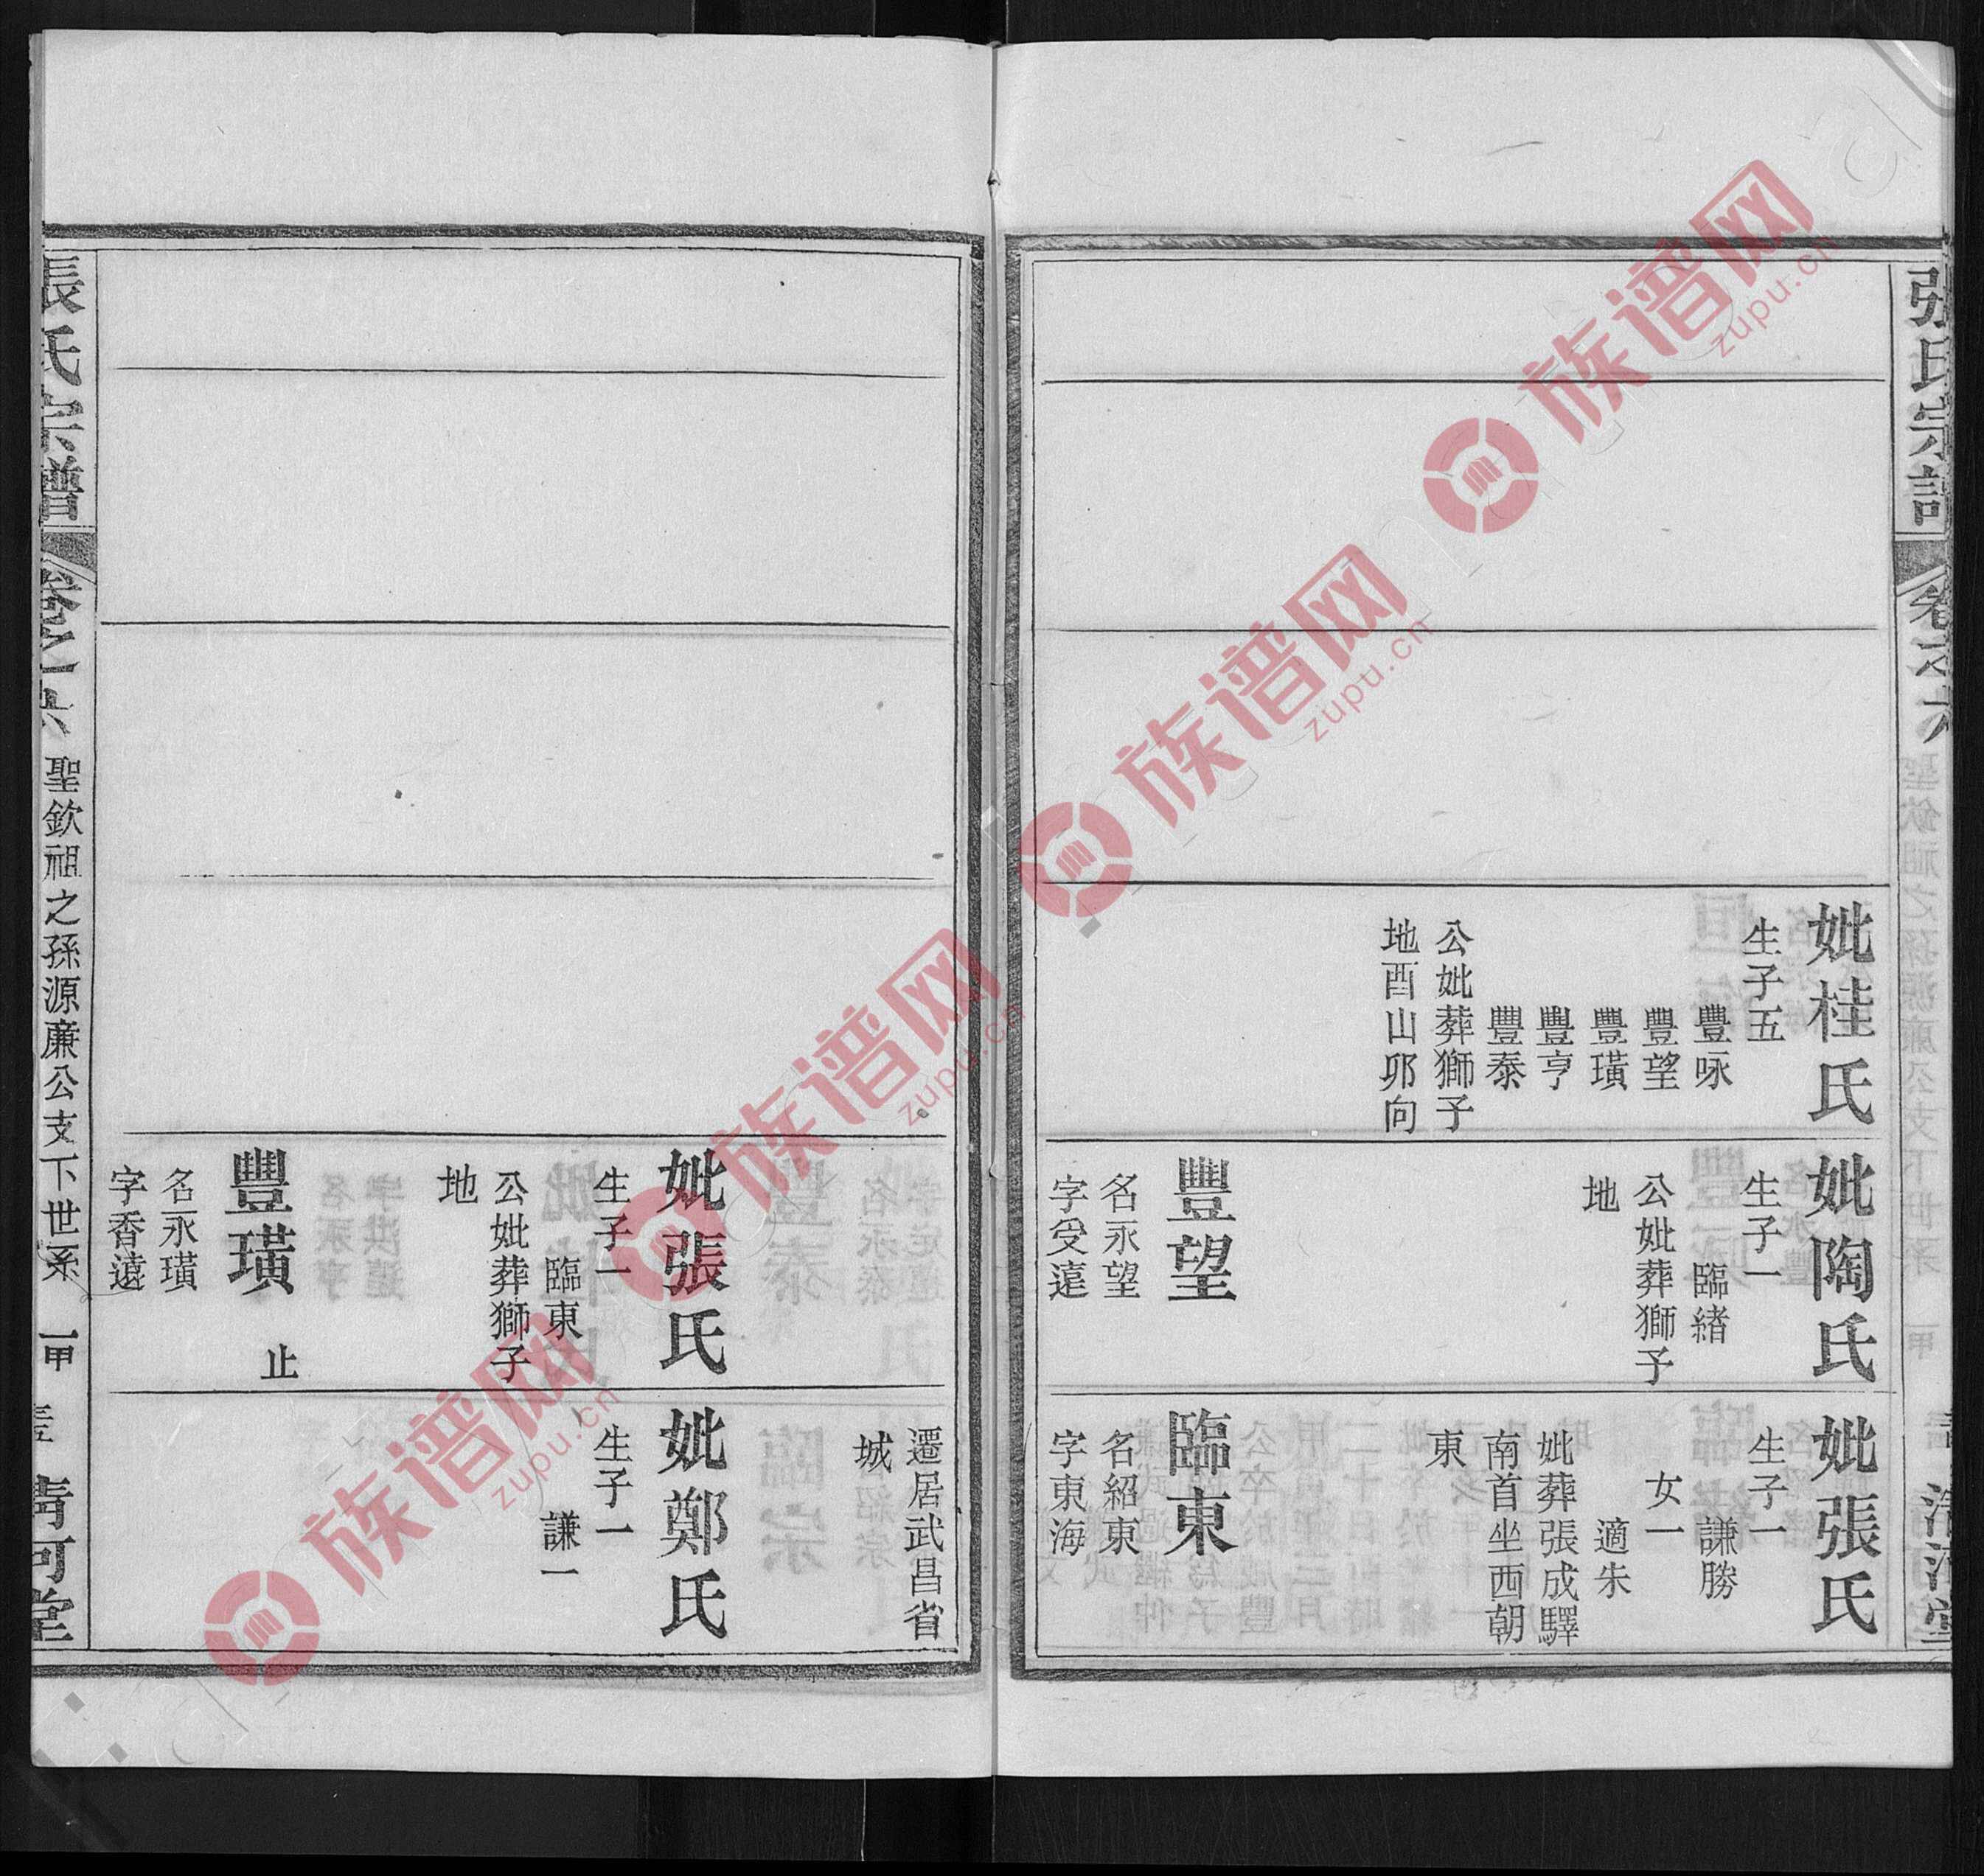 張氏宗譜
卷之六
妣桂氏
生子五
豐咏
豐望
豐璜
豐亨
豐泰
公妣葬獅子
地酉山夘向
妣陶氏
生子一
臨緒
公妣葬獅子
地
豐望
名永望
字受遠
妣張氏
生子一
謙勝
女一
適朱
妣葬張成驛
南首坐西朝
東
臨東
名紹東
字東海
妣張氏
生子一
臨東
公妣葬獅子
地
豐璜
止
名永璜
字香遠
遷居武昌省
城
妣鄭氏
生子一
謙一
張氏宗譜
卷之六
聖欽祖之孫源廉公支下世系
一甲
清河堂
族谱网
zupu.cn
族谱网
zupu.cn
族谱网
zupu.cn
族谱网
zupu.cn